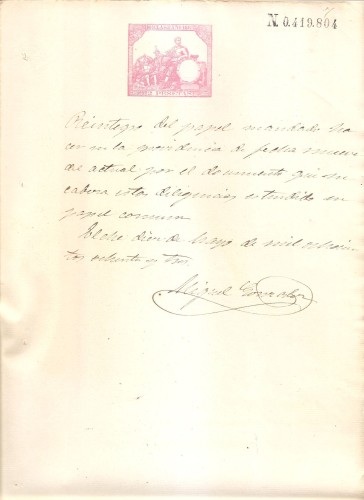 N 0.419.804
Reintegro del papel mandado ha
cer en la providencia de fecha nueve
de actual por el documento que en
cabeza estas diligencias estendido en
papel comun
Elche diez de Mayo de mil ochocien
tos ochenta y tres
Miguel Gonzalez